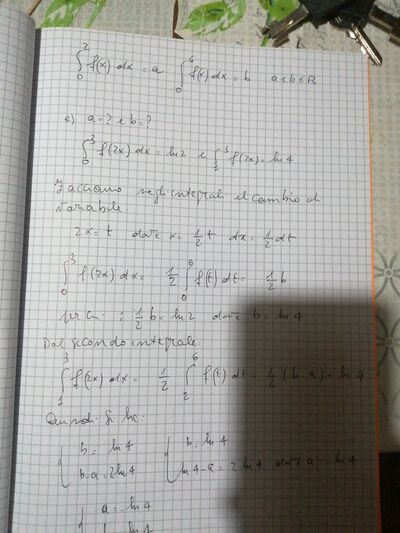 ∫₀² f(x) dx = a   ∫₀⁶ f(x) dx = b   a e b ∈ R
e) a = ? e b = ?
∫₀³ f(2x) dx = ln 2 e ∫₁³ f(2x) = ln 4
Facciamo negli integrali il cambio di
variabile
2x = t   dove x = 1/2 t   dx = 1/2 dt
∫₀³ f(2x) dx = 1/2 ∫₀⁶ f(t) dt = 1/2 b
per cui : 1/2 b = ln 2   dove b = ln 4
Dal secondo integrale:
∫₁³ f(2x) dx = 1/2 ∫₂⁶ f(t) dt = 1/2 (b - a) = ln 4
Quindi si ha:
{ b = ln 4   { b = ln 4
{ b - a = 2 ln 4   { ln 4 - a = 2 ln 4   dove a = - ln 4
{ a = - ln 4
ln 4